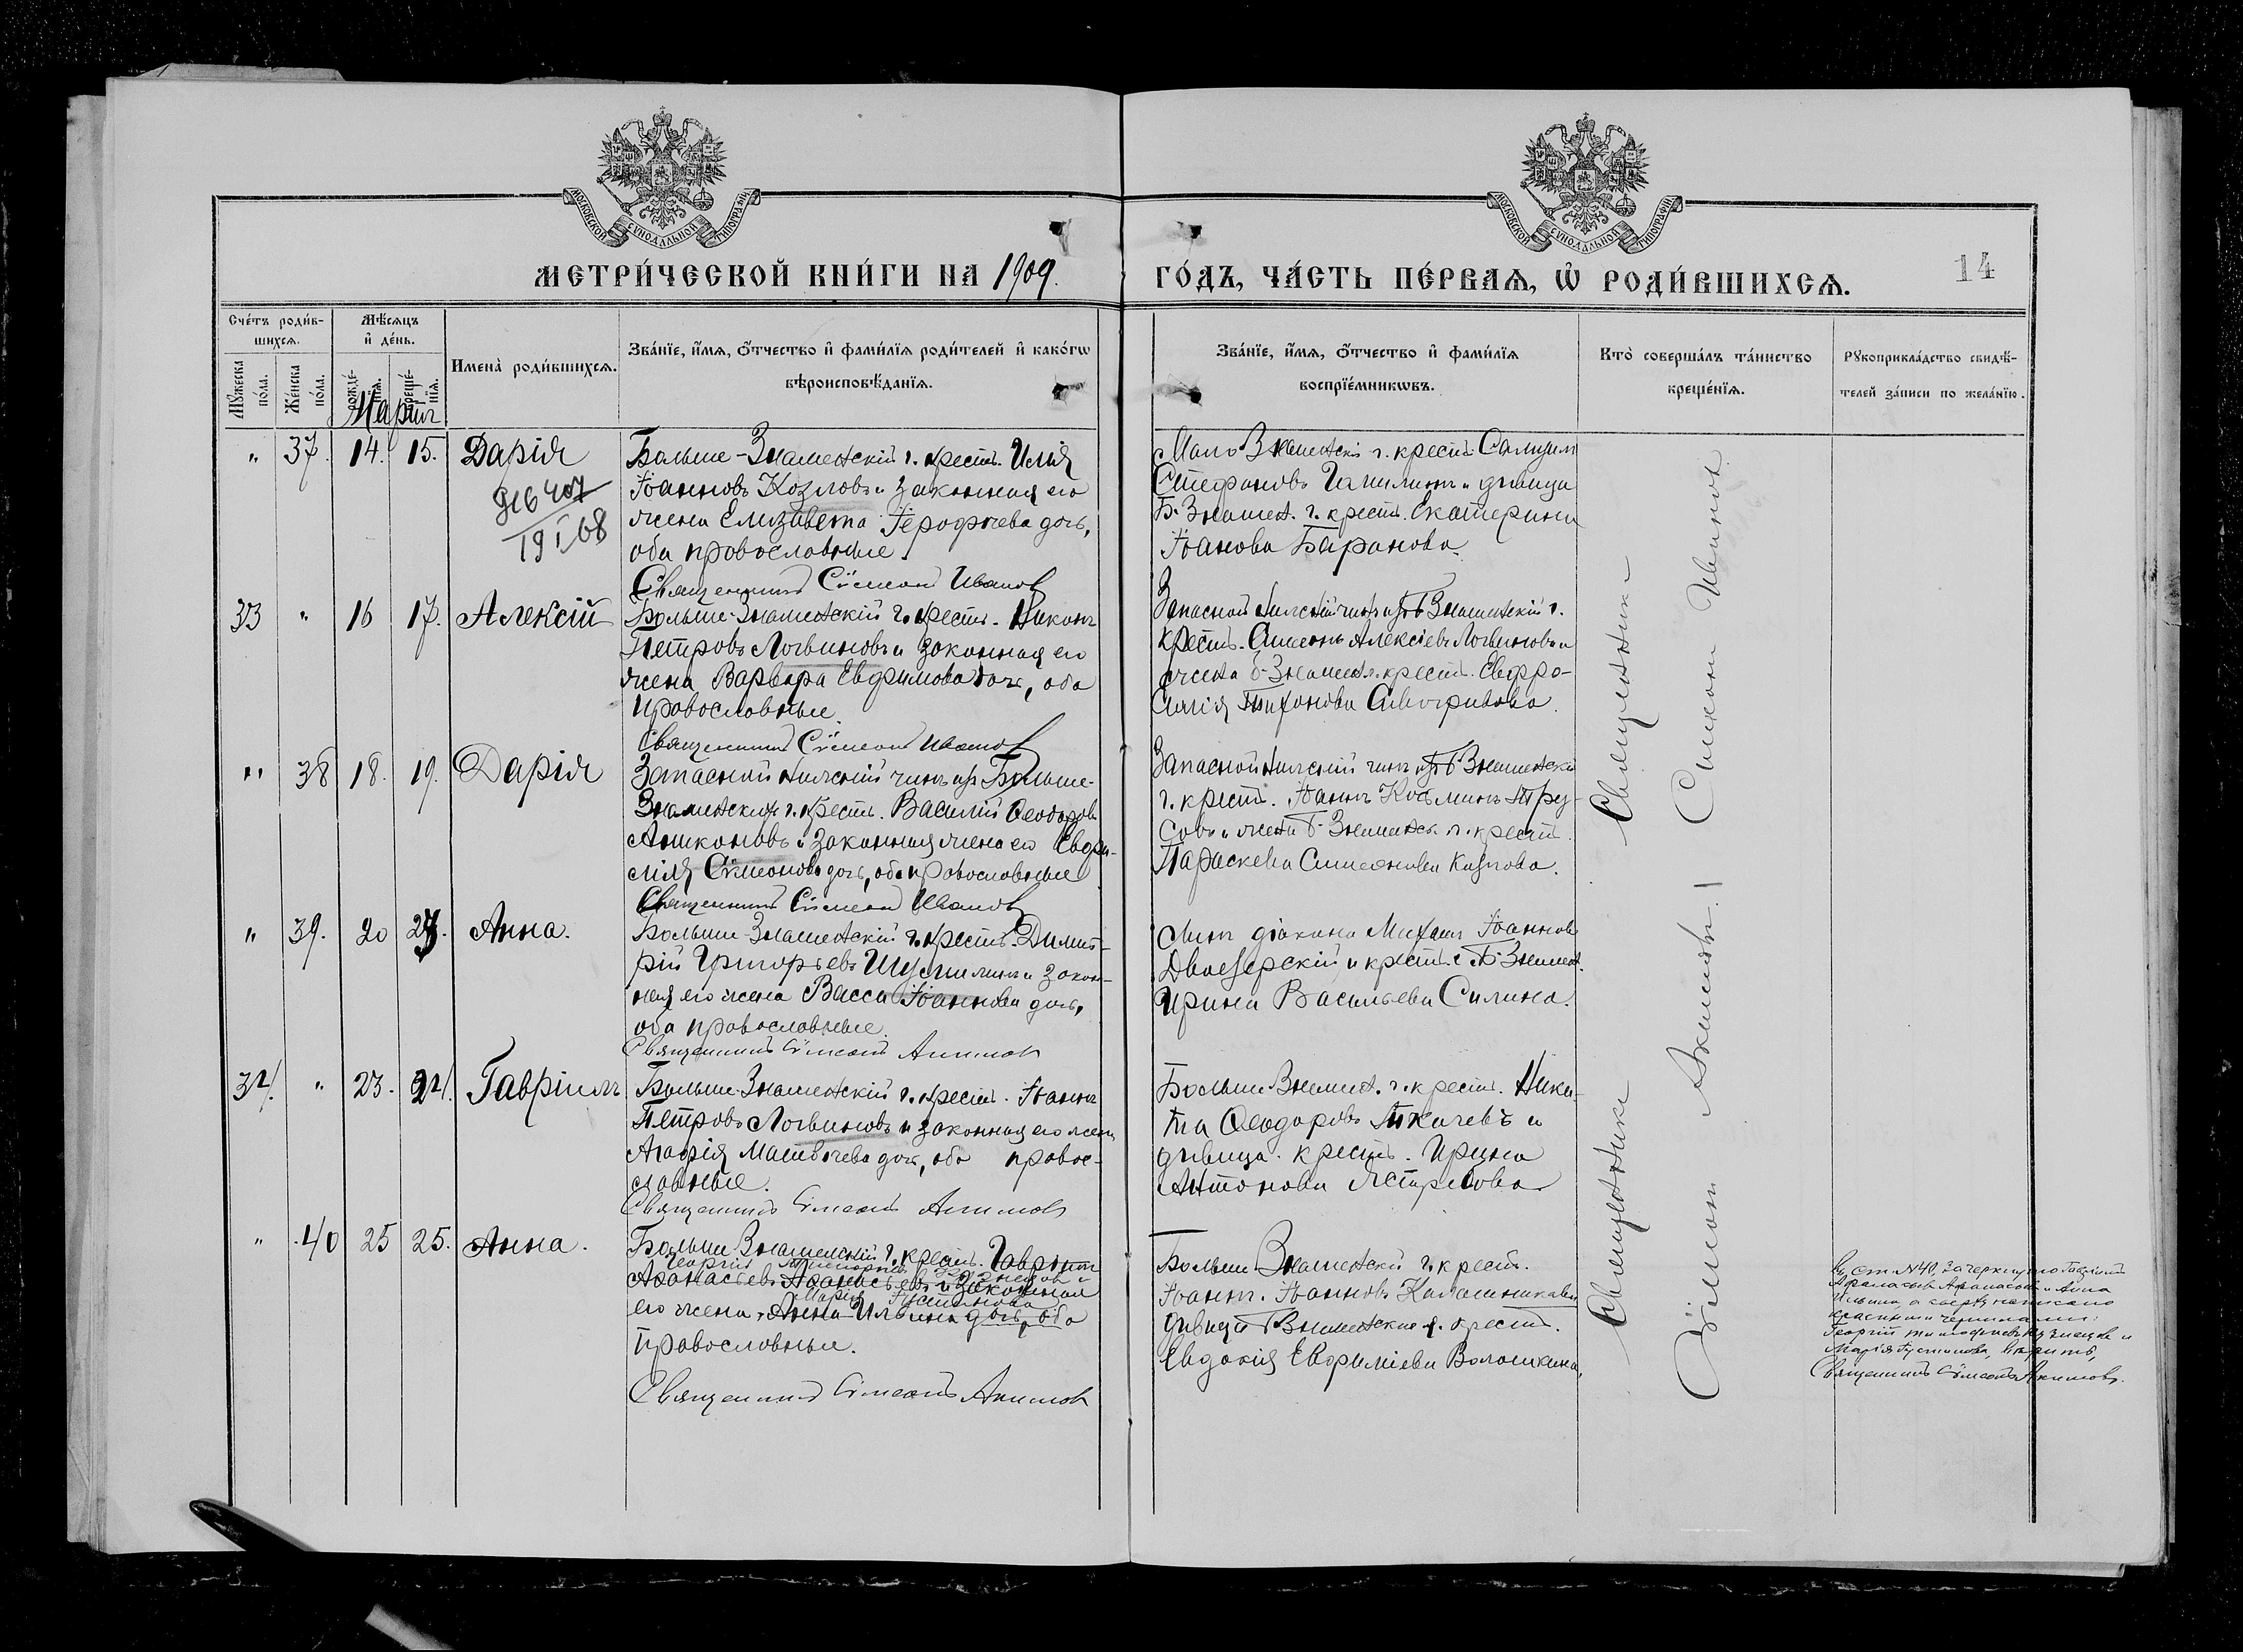 МОСКОВСКОЙ СѴНОДАЛЬНОЙ ТИПОГРАФІИ
МОСКОВСКОЙ СѴНОДАЛЬНОЙ ТИПОГРАФІИ
МЕТРИ́ЧЕСКОЙ КНИ́ГИ НА 1909.
ГО́ДЪ, ЧА́СТЬ ПЕ́РВАѦ, Ѡ҆ РОДИ́ВШИХСѦ.
14
Сче́тъ роди́в-
шихсѧ.
Мꙋ́жеска по́ла.
Же́нска по́ла.
Мѣ́сѧцъ
и҆ де́нь.
рожде́-нїѧ.
креще́-нїѧ.
Имена̀ роди́вшихсѧ.
Зва́нїе, и҆́мѧ, ѻ҆́тчество и҆ фами́лїѧ роди́телей и҆ како́гѡ
вѣроисповѣ́данїѧ.
Зва́нїе, и҆́мѧ, ѻ҆́тчество и҆ фами́лїѧ
воспрїе́мникѡвъ.
Кто̀ соверша́лъ та́инство
креще́нїѧ.
Рꙋкоприкла́дство свидѣ́-
телей за́писи по жела́нїю.
Мартъ
" 37. 14. 15. Дарія
407
19 I 68
Больше-Знаменскій г. крест. Илія
Іоанновъ Козловъ и законная его
жена Елизавета Іерофѣева дочь,
оба православные.
Священникъ Сѵмеонъ Иванов
Мало Знаменскій г. крест.
Стефановъ и дѣвица
Б. Знамен. г. крест. Екатерина
Іоанова Баранова.
33 " 16 17. Алексій
Больше-Знаменскій г. крест. Никонъ
Петровъ Логвиновъ и законная его
жена Варвара Евфимова дочь, оба
православные.
Священникъ Сѵмеонъ Иванов
Запасной нижній чинъ изъ Б Знаменскій г.
крест. Симеонъ Алексіевъ Логвиновъ и
жена Б-Знамен. г. крест. Евфро-
синія Тихонова
" 38 18. 19. Дарія
Запасной нижній чинъ изъ Больше-
Знаменскихъ г. крест. Василій Ѳеодоровъ
Аниконовъ и законная жена его Евфи-
мія Сѵмеонова дочь, оба православные
Священникъ Сѵмеонъ Иванов
Запасной нижній чинъ изъ Б Знаменскій
г. крест. Іоаннъ Косьминъ Тру-
совъ и жена Б-Знаменск. г. крест.
Параскева Симеонова
" 39. 20 Анна.
Больше-Знаменскій г. крест. Димит-
рій Григорьевъ и закон-
ная его жена Васса Іоаннова дочь,
оба православные.
Священникъ Сѵмеонъ Акимов
Сынъ діакона Михаилъ Іоанновъ
и крест. с Б-Знамен.
Ирина Васильева Силина.
34. " 23. 24. Гавріилъ
Больше-Знаменскій г. крест. Іоаннъ
Петровъ Логвиновъ и законная его жена
Агафія Матвѣева дочь, оба правос-
лавные.
Священникъ Сѵмеонъ Акимовъ
Больше Знамен. г. крест. Ники-
та Ѳеодоровъ Ткачевъ и
дѣвица крест. Ирина
Антонова
" 40 25 25. Анна.
Больше Знаменскій г. крест. Гавріилъ
Георгій Тимофеевъ Кузнецов и
Аѳанасьевъ Аѳанасьевъ и законная
Марія Іустинова
его жена Анна Ильина дочь, оба
православные.
Священникъ Сѵмеонъ Акимов
Больше Знаменскій г. крест.
Іоаннъ Іоанновъ Калашниковъ
дѣвица Б Знаменская г. крест.
Евдокія Евфиміева Волошкина,
Священникъ
Симеон Иванов
Священникъ
Сѵмеон Акимовъ
Въ ст. N 40, зачеркнуто Гавріилъ
Афанасьевъ Афанасьевъ и Анна
Ильина, а сверху написано
красными чернилами:
Георгій Тимофеевъ Кузнецов и
Марія Іустинова, вѣрить,
Священникъ Сѵмеонъ Акимовъ.